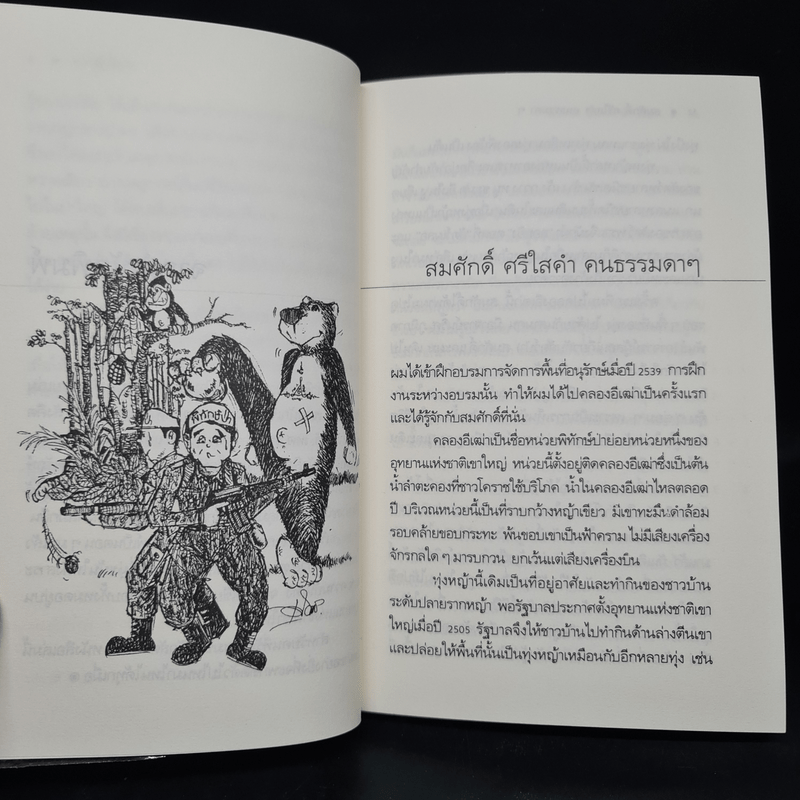 พิทักษ์ป่า
สมศักดิ์ ศรีใสคำ คนธรรมดาๆ
ผมได้เข้าฝึกอบรมการจัดการพื้นที่อนุรักษ์เมื่อปี 2539 การฝึก
งานระหว่างอบรมนั้น ทำให้ผมได้ไปคลองอีเฒ่าเป็นครั้งแรก
และได้รู้จักกับสมศักดิ์ที่นั่น
คลองอีเฒ่าเป็นชื่อหน่วยพิทักษ์ป่าย่อยหน่วยหนึ่งของ
อุทยานแห่งชาติเขาใหญ่ หน่วยนี้ตั้งอยู่ติดคลองอีเฒ่าซึ่งเป็นต้น
น้ำลำตะคองที่ชาวโคราชใช้บริโภค น้ำในคลองอีเฒ่าไหลตลอด
ปี บริเวณหน่วยนี้เป็นที่ราบกว้างหญ้าเขียว มีเขาทะมึนดำล้อม
รอบคล้ายขอบกระทะ พ้นขอบเขาเป็นฟ้าคราม ไม่มีเสียงเครื่อง
จักรกลใด ๆ มารบกวน ยกเว้นแต่เสียงเครื่องบิน
ทุ่งหญ้านี้เดิมเป็นที่อยู่อาศัยและทำกินของชาวบ้าน
ระดับปลายรากหญ้า พอรัฐบาลประกาศตั้งอุทยานแห่งชาติเขา
ใหญ่เมื่อปี 2505 รัฐบาลจึงให้ชาวบ้านไปทำกินด้านล่างตีนเขา
และปล่อยให้พื้นที่นั้นเป็นทุ่งหญ้าเหมือนกับอีกหลายทุ่ง เช่น